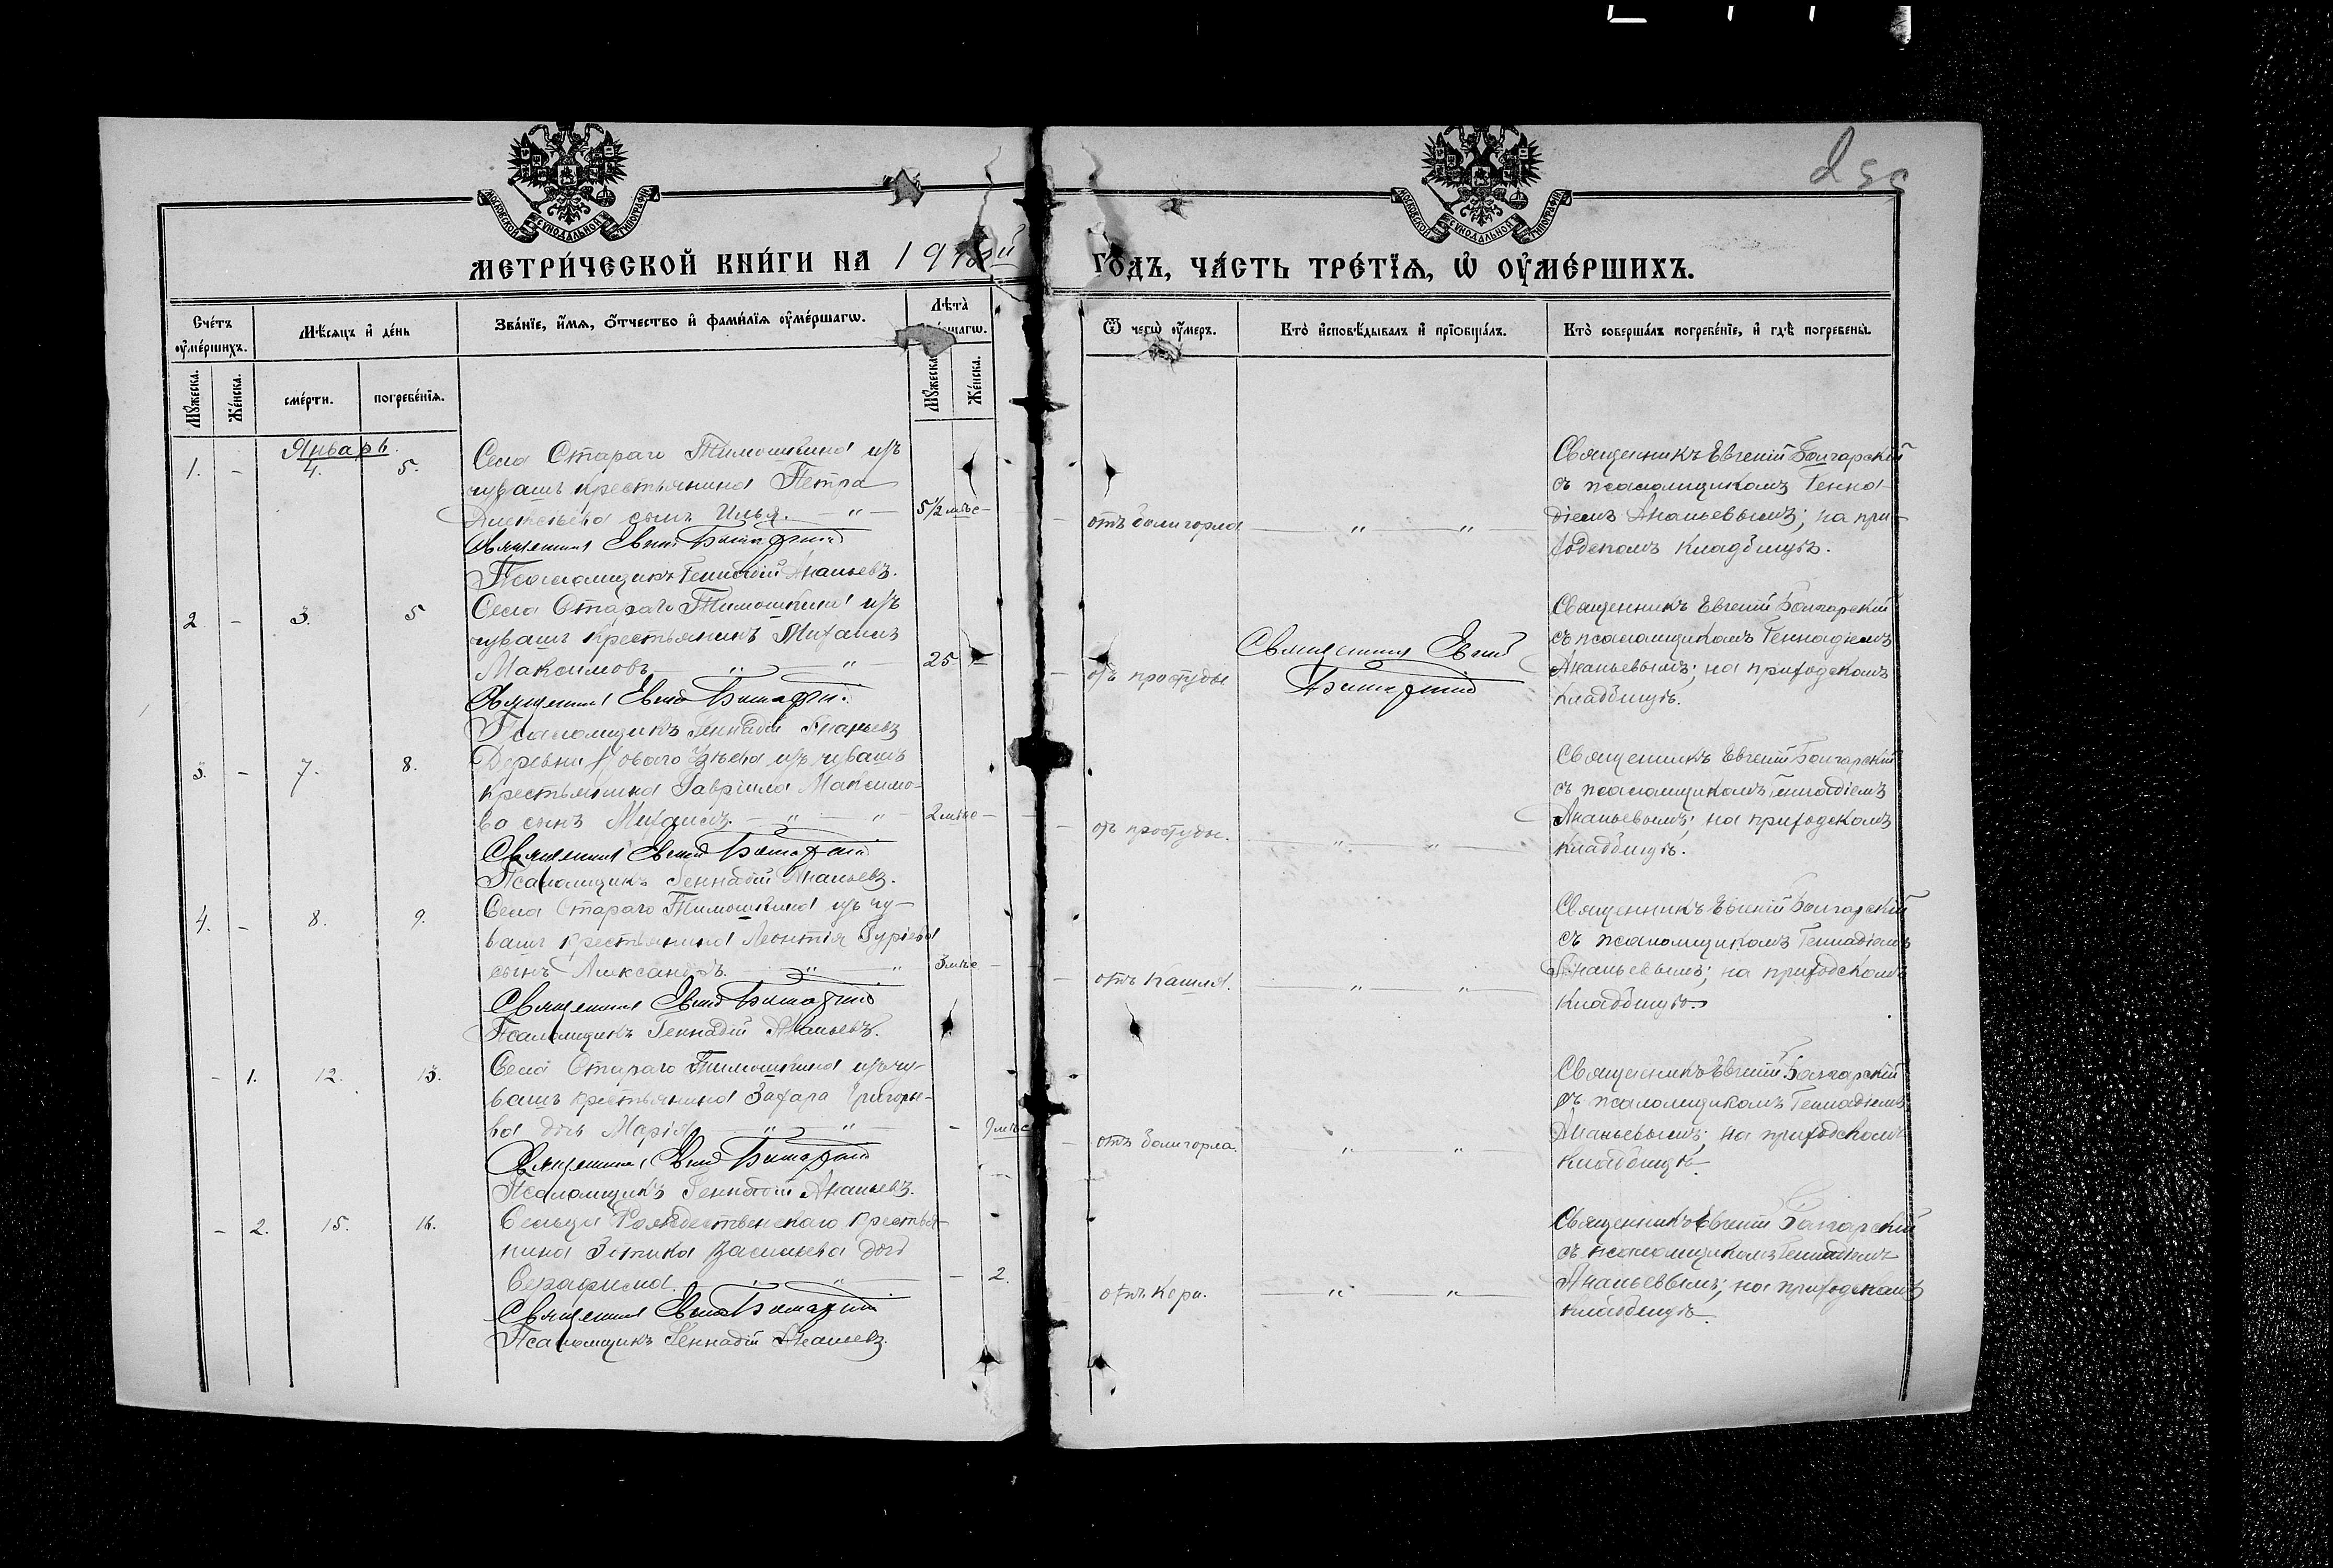 МЕТРИ́ЧЕСКОЙ КНИ́ГИ НА 19
ГО́ДЪ, ЧА́СТЬ ТРЕ́ТЇѦ, Ѡ҆ ОУ҆МЕ́РШИХЪ.
МОСКОВСКОЙ СѴНОДАЛЬНОЙ ТИПОГРАФІИ
МОСКОВСКОЙ СѴНОДАЛЬНОЙ ТИПОГРАФІИ
Сче́тъ оу҆ме́ршихъ.
Мѣ́сѧцъ и҆ де́нь
Зва́нїе, и҆́мѧ, ѻ҆́тчество и҆ фами́лїѧ оу҆ме́ршагѡ.
Лѣ́та
Ѿ чегѡ̀ оу҆́меръ.
Кто̀ и҆сповѣ́дывалъ и҆ прїѻбща́лъ.
Кто̀ соверша́лъ погребе́нїе, и҆ гдѣ̀ погребены̀.
Мꙋ́жеска.
Же́нска.
сме́рти.
погребе́нїѧ.
Мꙋ́жеска.
Же́нска.
Январь.
1. - 4. 5.
Села Стараго Тимошкина изъ
чувашъ крестьянина Петра
Алексѣева сынъ Илья. — " — 5 1/2 мѣс -
Священник Евгений Болгарский
Псаломщикъ Геннадій Ананьевъ.
отъ боли горла — " — " —
Священникъ Евгеній Болгарскій
съ псаломщикомъ Генна-
діемъ Ананьевымъ; на при-
ходскомъ кладбищѣ.
2 - 3. 5
Села Стараго Тимошкина изъ
чувашъ крестьянинъ Михаилъ
Максимовъ — " — " — 25 -
Священник Евгений Болгарский
Псаломщикъ Геннадій Ананьевъ
отъ простуды
Священник Евгений
Болгарский
Священникъ Евгеній Болгарскій
съ псаломщикомъ Геннадіемъ
Ананьевымъ; на приходскомъ
кладбищѣ.
3. - 7. 8.
Деревни изъ чувашъ
крестьянина Гавріила Максимо-
ва сынъ Михаилъ. — " — " — 2 мѣс -
Священник Евгений Болгарский
Псаломщикъ Геннадій Ананьевъ.
отъ простуды. — " — " —
Священникъ Евгеній Болгарскій
съ псаломщикомъ Геннадіемъ
Ананьевымъ; на приходскомъ
кладбищѣ.
4. - 8. 9.
Села Стараго Тимошкина изъ чу-
вашъ крестьянина Леонтія Гурьева
сынъ Александръ. — " — " — 3 мѣс -
Священник Евгений Болгарский
Псаломщикъ Геннадій Ананьевъ.
отъ кашля. — " — " —
Священникъ Евгеній Болгарскій
съ псаломщикомъ Геннадіемъ
Ананьевымъ; на приходскомъ
кладбищѣ.
- 1. 12. 13.
Села Стараго Тимошкина изъ чу-
вашъ крестьянина Захара Григорье-
ва дочь Марія — " — " — - 9 мѣс
Священник Евгений Болгарский
Псаломщикъ Геннадій Ананьевъ.
отъ боли горла. " "
Священникъ Евгеній Болгарскій
съ псаломщикомъ Геннадіемъ
Ананьевымъ; на приходскомъ
кладбищѣ.
- 2. 15. 16.
Сельца Рождественскаго крестья-
нина Зотика Васильева дочь
Серафима. — " — " — - 2.
Священник Евгений Болгарский
Псаломщикъ Геннадій Ананьевъ.
отъ кори. — " — " —
Священникъ Евгеній Болгарскій
съ псаломщикомъ Геннадіемъ
Ананьевымъ; на приходскомъ
кладбищѣ.